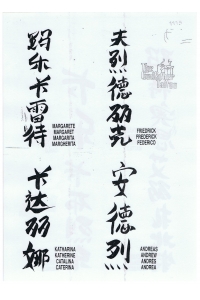 玛尔卡雷特
MARGARETE
MARGARET
MARGARITA
MARGHERITA
夫烈德励克
FRIEDRICK
FREDERICK
FEDERICO
卡达丽娜
KATHARINA
KATHERINE
CATALINA
CATERINA
安德烈
ANDREAS
ANDREW
ANDRES
ANDREA